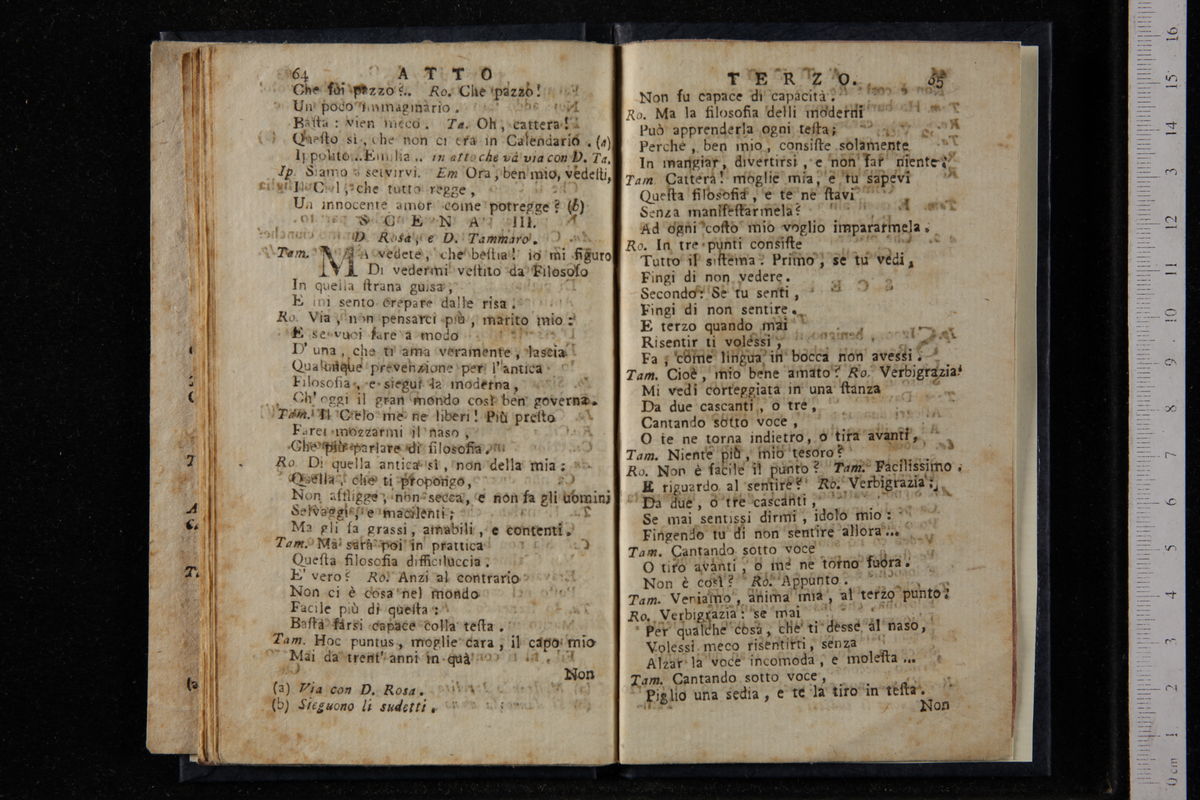 64 ATTO
Che foi pazzo?.. Ro. Che pazzo!
Un poco immaginario.
Basta: vien meco. Ta. Oh, cattera!
Questo sì, che non ci era in Calendario. (a)
Ippolito..Emilia.. in atto che và via con D. Ta.
Ip. Siamo a servirvi. Em Ora, ben mio, vedesti,
Il Ciel, che tutto regge,
Un innocente amor come potregge? (b)
SCENA III.
D. Rosa, e D. Tammaro.
Tam. MA vedete, che bestia! io mi figuro
Di vedermi vestito da Filosofo
In quella strana guisa,
E mi sento crepare dalle risa.
Ro. Via, non pensarci più, marito mio:
E se vuoi fare a modo
D' una, che ti ama veramente, lascia
Qualunque prevenzione per l'antica
Filosofia, e siegui la moderna,
Ch' oggi il gran mondo così ben governa.
Tam. Il Cielo me ne liberi! Più presto
Farei mozzarmi il naso,
Che più parlare di filosofia.
Ro. Di quella antica sì, non della mia:
Quella, che ti propongo,
Non affligge, non secca, e non fa gli uomini
Selvaggi, e macilenti;
Ma gli fa grassi, amabili, e contenti.
Tam. Ma sarà poi in prattica
Questa filosofia difficiluccia.
E' vero? Ro. Anzi al contrario
Non ci è cosa nel mondo
Facile più di questa:
Basta farsi capace colla testa.
Tam. Hoc puntus, moglie cara, il capo mio
Mai da trent' anni in quà
Non
(a) Via con D. Rosa.
(b) Sieguono li sudetti.
TERZO. 65
Non fu capace di capacità.
Ro. Ma la filosofia delli moderni
Può apprenderla ogni testa;
Perchè, ben mio, consiste solamente
In mangiar, divertirsi, e non far niente.
Tam. Cattera! moglie mia, e tu sapevi
Questa filosofia, e te ne stavi
Senza manifestarmela?
Ad ogni costo mio voglio impararmela.
Ro. In tre punti consiste
Tutto il sistema. Primo, se tu vedi,
Fingi di non vedere.
Secondo: Se tu senti,
Fingi di non sentire.
E terzo quando mai
Risentir ti volessi,
Fa, come lingua in bocca non avessi.
Tam. Cioè, mio bene amato? Ro. Verbigrazia:
Mi vedi corteggiata in una stanza
Da due cascanti, o tre,
Cantando sotto voce,
O te ne torna indietro, o tira avanti,
Tam. Niente più, mio tesoro?
Ro. Non è facile il punto? Tam. Facilissimo.
E riguardo al sentire? Ro. Verbigrazia:
Da due, o tre cascanti,
Se mai sentissi dirmi, idolo mio:
Fingendo tu di non sentire allora...
Tam. Cantando sotto voce
O tiro avanti, o me ne torno fuora.
Non è così? Ro. Appunto.
Tam. Veniamo, anima mia, al terzo punto.
Ro. Verbigrazia: se mai
Per qualche cosa, che ti desse al naso,
Volessi meco risentirti, senza
Alzar la voce incomoda, e molesta...
Tam. Cantando sotto voce,
Piglio una sedia, e te la tiro in testa.
Non